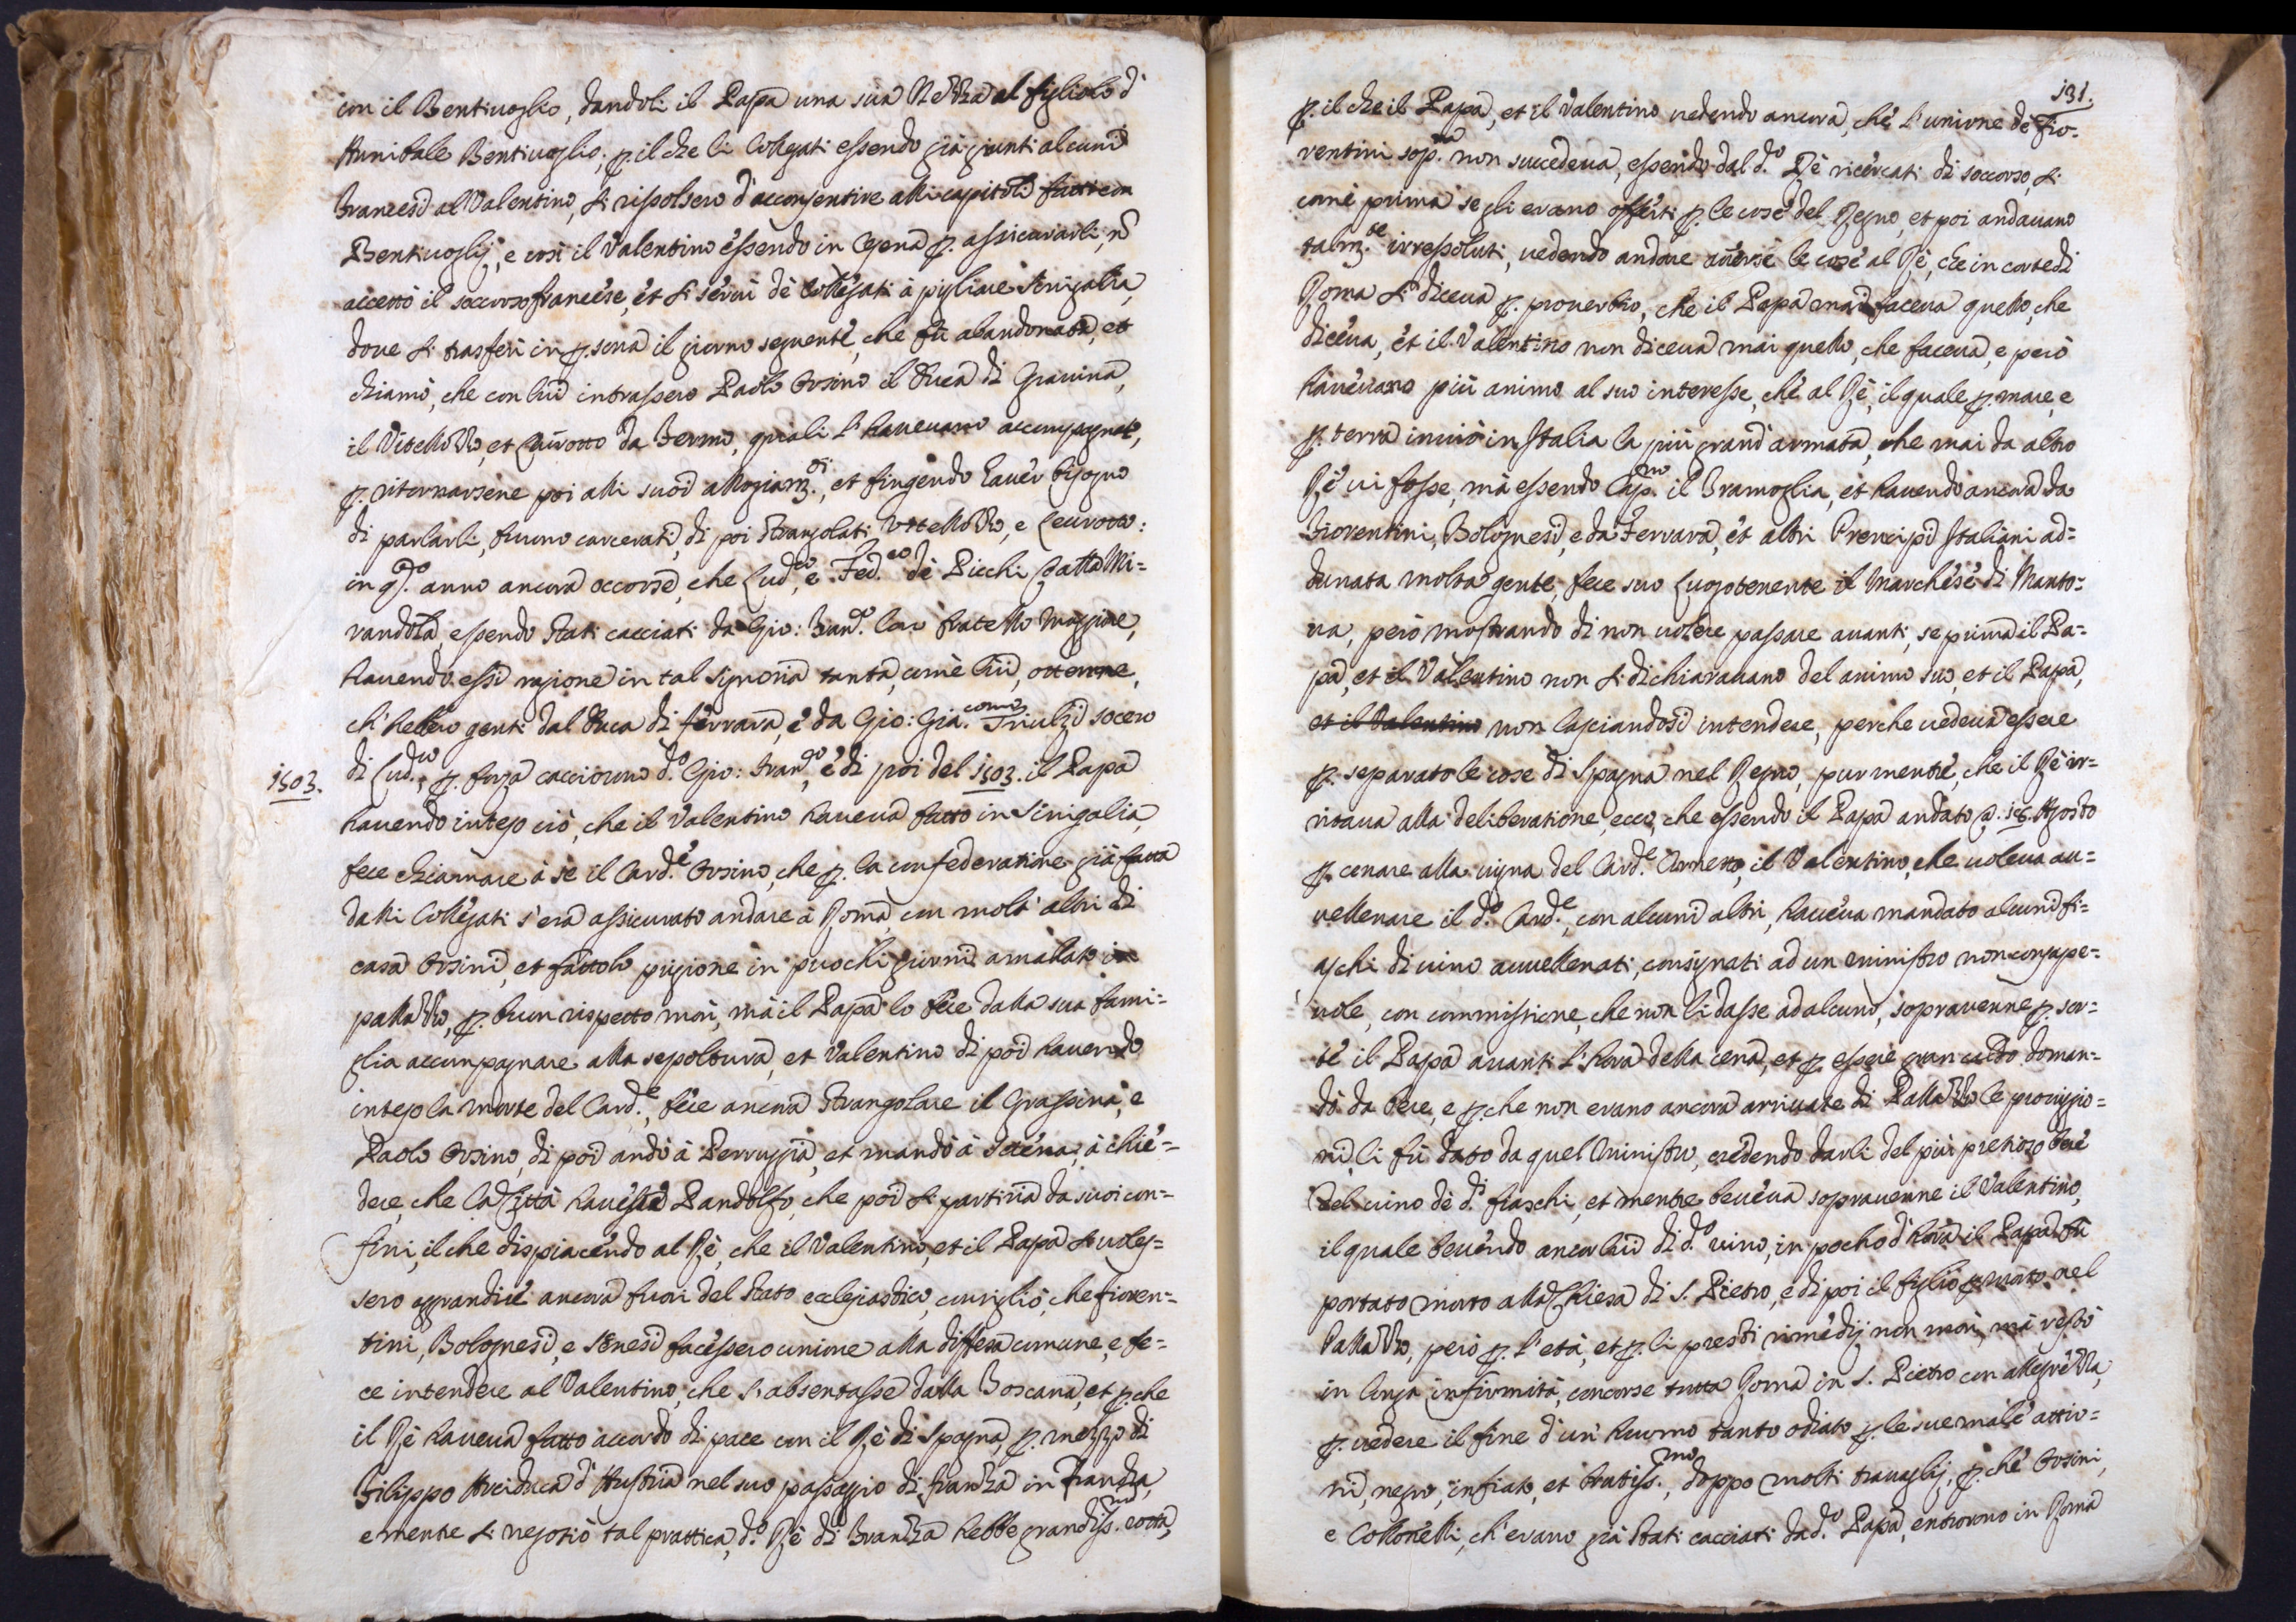 con il Bentivoglio, dandoli il Papa una sua Nezza al figliolo d'
Annibale Bentivoglio; p. il che li Collegati essendo già gionti alcuni
Francesi al Valentino, si rissolsero d'acconsentire alli capitoli fatti con
Bentivoglij, e così il Valentino essendo in Cesena p. assicurarli, nõ
accettò il soccorso francese, et si servì de Collegati à pigliare Sinigalia,
dove si trasferì in p.sona il giorno seguente, che fù abandonata, et
chiamò, che con lui intrassero Paolo Orsino il Duca di Gravina,
il Vitellozzo, et da Fermo, quali l'havevano accompagnato,
p. ritornarsene poi alli suoi allogiam.ti, et fingendo haver bisogno
di parlarli, furno carcerati, di poi strangolati Vitellozzo, e Leurotto:
in q.to anno ancora occorse, che Lud.co, e Fed.co de Picchi dalla Mi=
randola, essendo stati cacciati da Gio: Fran.co loro fratello maggiore,
havendo essi ragione in tal signoria tanta, come lui, ottenne,
ch'hebbero genti dal Duca di ferrara, e da Gio: Gia.como Triulzi socero
di Lud.co, p. forza cacciorno d.o Gio: fran.co, e di poi del 1503. il Papa
1503.
havendo inteso ciò, che il Valentino haveva fatto in Sinigalia,
fece chiamare à se il Card.e Orsino, che p. la confederatione già fatta
dalli Collegati s'era assicurato andare à Roma, con molt'altri di
casa Orsini, et fattolo prigione in puochi giorni amallato in
pallazzo, p. buon rispetto morì, mà il Papa lo fece dalla sua fami=
glia accompagnare alla sepoltura, et Valentino di poi havendo
inteso la morte del Card.e, fece ancora strangolare il Grassina, e
Paolo Orsino, di poi andò à Perruggia, et mandò à Siena, à chie=
dere, che la Città Pandolfo, che poi si partiria da suoi con=
fini, il che dispiacendo al Rè, che il Valentino, et il Papa si voles=
sero aggrandire ancora fuori del stato eclesiastico, consigliò, che fioren=
tini, Bolognesi, e Senesi facessero unione alla diffesa comune, e fe=
ce intendere al Valentino, che s'absentasse dalla Toscana, et p.che
il Rè haveva fatto accordo di pace con il Rè di Spagna, p. mezzo di
Filippo Arciduca d'Austria nel suo passaggio di franza in franza,
e mentre si negotiò tal prattica, d.o Rè di Franza hebbe grandiss.ma rotta,
191.
p. il che il Papa, et il Valentino vedendo ancora, che l'unione de fio=
rentini sop.ta non succedeva, essendo dal d.o Rè ricercati di soccorso, si
come prima se gli erano offerti p. le cose del Regno, et poi andavano
talm.te irressoluti, vedendo andare averse le cose al Rè, che in corte di
Roma si diceva p. proverbio, che il Papa mai faceva quello, che
diceva, et il Valentino non diceva mai quello, che faceva, e però
havevano più animo al suo interesse, che al Rè, il quale p. mare, e
p. terra inviò in Italia la più grand'armata, che mai da altro
Rè vi fosse, mà essendo Cap.no il Tramoglia, et havendo ancora da
Fiorentini, Bolognesi, e da Ferrara, et altri Prencipi Italiani ad=
dunata molta gente, fece suo Luogotenente il Marchese di Manto=
va, però mostrando di non volere passare avanti, se prima il Pa=
pa, et il Valentino non si dichiaravano del animo suo, et il Papa,
et il Valentino non lasciandosi intendere, perche vedeva essere
p. separato le cose di Spagna nel Regno, pur mentre, che il Rè ir=
ritava alla deliberatione, ecco, che essendo il Papa andato a: 18. Agosto
p. cenare alla vigna del Card.e Cornetto, il Valentino, che voleva av=
vellenare il d.o Card.e, con alcuni altri, haveva mandato alcuni fi=
aschi di vino avvellenati, consignati ad un ministro non consape=
vole, con commissione, che non li dasse ad alcuno, sopravenne p. sor=
te il Papa avanti l'hora della cena, et p. essere gran caldo doman=
dò da bere, e p.che non erano ancora arrivate di Pallazzo le provisio=
ni, li fù dato da quel Ministro, credendo darli del più pretioso bere
del vino de d.i fiaschi, et mentre beveva sopravenne il Valentino,
il quale bevendo ancor lui di d.o vino, in pocho d'hora il Papa fù
portato morto alla Chiesa di S. Pietro, e di poi il figlio p. morto nel
Pallazzo, però p. l'età, et p. li presti rimedij non morì, mà restò
in longa infirmità, concorse tutta Roma in S. Pietro con allegrezza,
p. vedere il fine d'un huomo tanto odiato p. le sue male attio=
ni, negro, infiato, et brutiss.mo, doppo molti travaglij, p.chè Orsini,
e Collonelli, ch'erano già stati cacciati da d.o Papa, entrorno in Roma